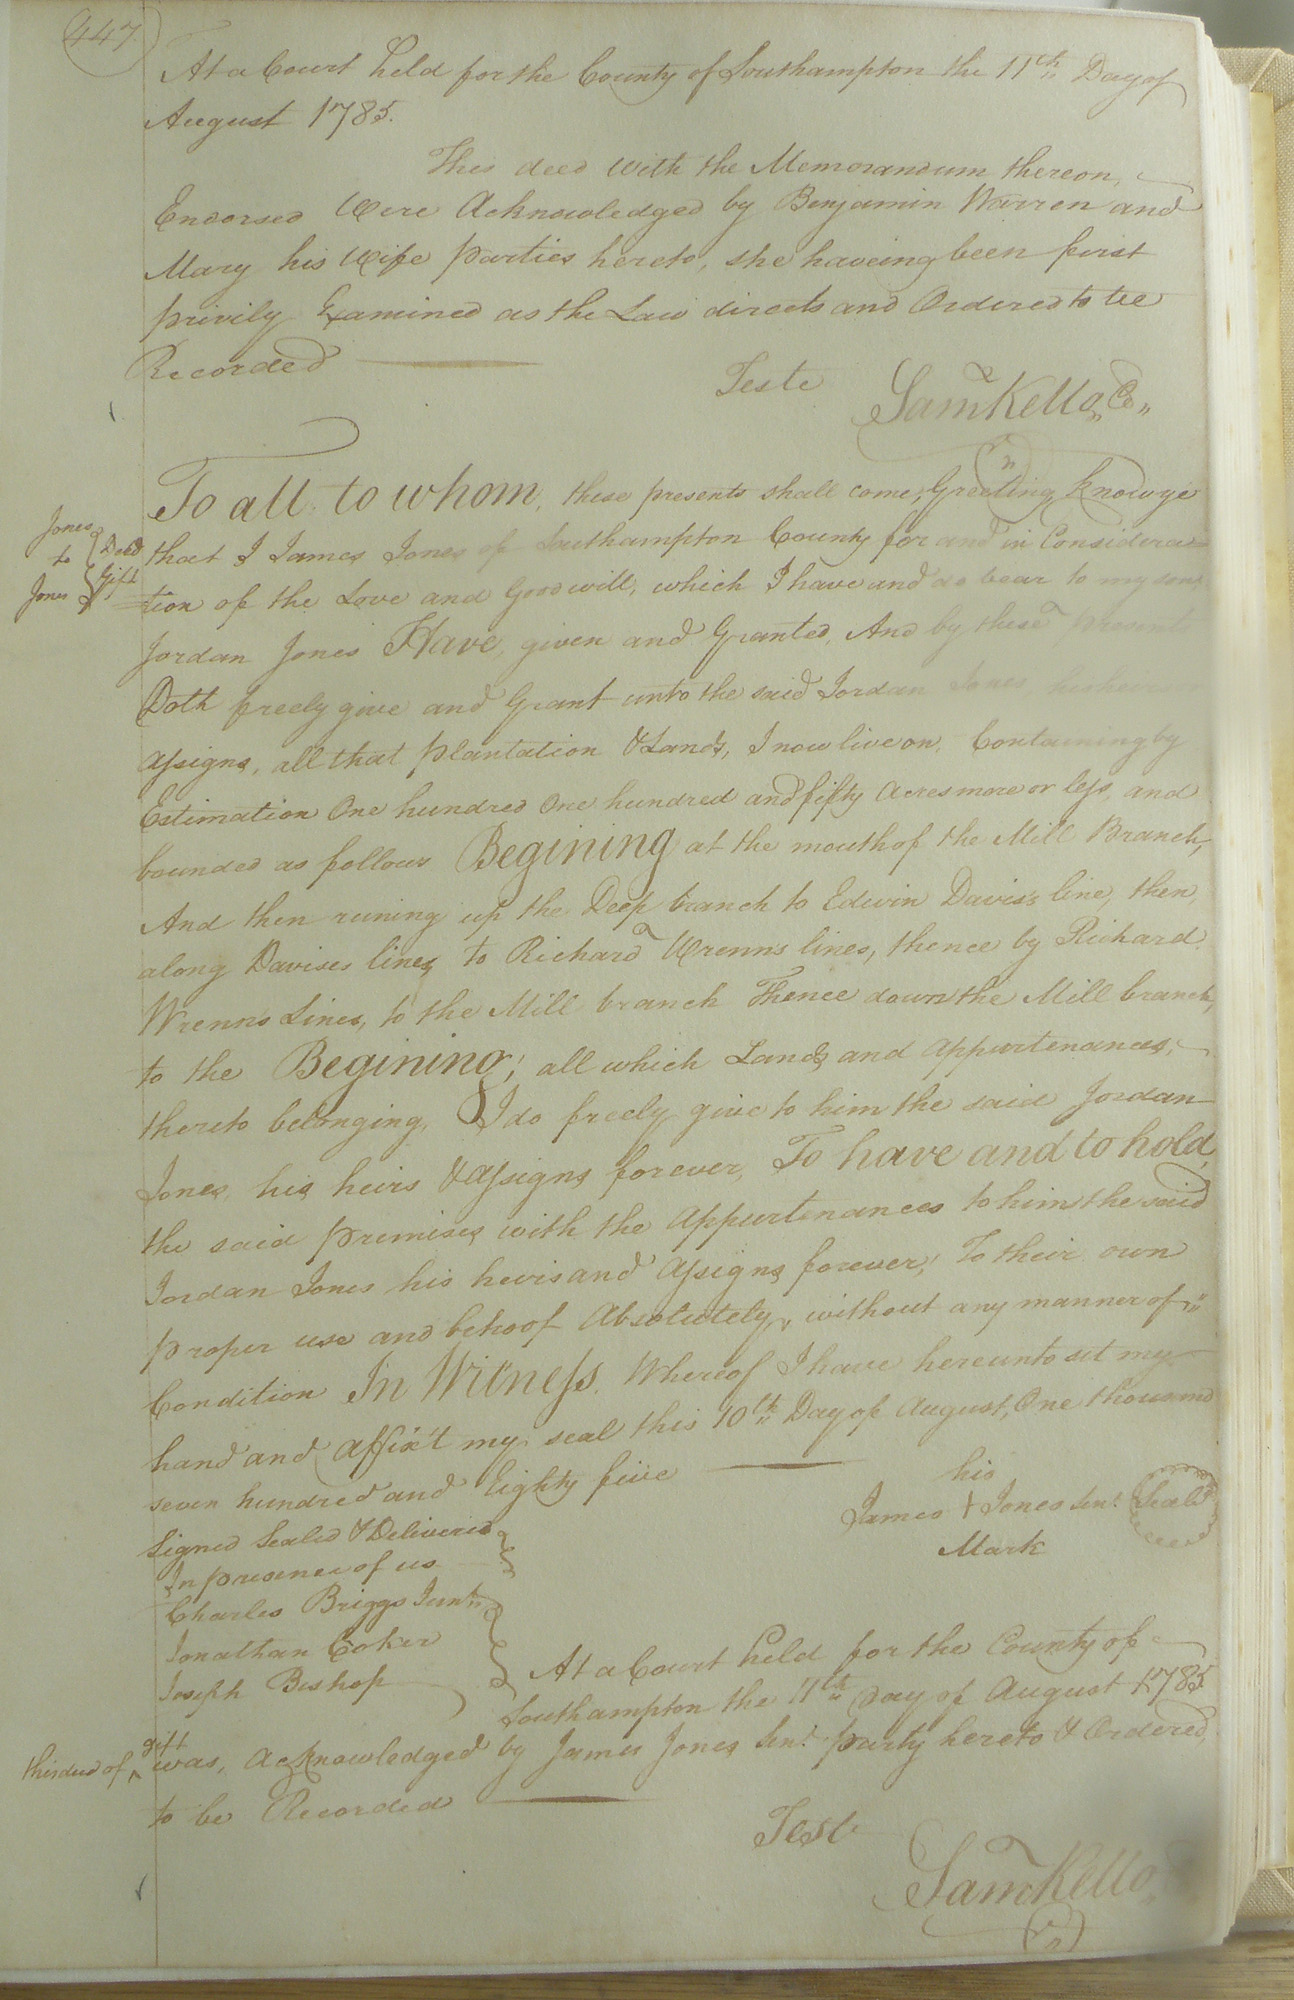 447.
At a Court held for the County of Southampton the 11th Day of
August 1785.
This deed with the Memorandum thereon,
Endorsed Were Acknowledged by Benjamin Warren and
Mary his Wife parties hereto, she haveing been first
privily Examined as the Law directs and Ordered to be
Recorded
Teste Saml Kello, Co,,
To all to whom, these presents shall come, Greeting Know ye
Jones
to
Jones
Deed
Gift
that I James Jones of Southampton County for and in Considera
tion of the Love and Good will, which I have and do bear to my son
Jordan Jones Have, given and Granted, And by these presents
Doth freely give and Grant unto the said Jordan Jones his heirs
Assigns, all that plantation & Lands, I now live on, Containing by
Estimation One hundred One hundred and fifty Acres more or less, and
bounded as follows Begining at the mouth of the Mill Branch,
And then runing up the Deep branch to Edwin Davis's line, then,
along Davises lines to Richard Wrenns lines, thence by Richard
Wrenns Lines, to the Mill branch Thence down the Mill branch,
to the Begining; all which Lands and Appurtenances,
thereto belonging, I do freely give to him the said Jordan
Jones, his heirs & Assigns forever, To have and to hold,
the said premises with the Appurtenances to him the said
Jordan Jones his heirs and Assigns forever; To their own
proper use and behoof Absolutely, without any manner of
Condition In Witness. Whereof I have hereunto set my
hand and affix't my seal this 10th Day of August, One thousand
seven hundred and Eighty five
his
James X Jones Senr. Seal
Mark
Signed Sealed & Delivered
In presence of us
Charles Briggs Junr.
Jonathan Coker
Joseph Bishop
At a Court held for the County of
Southampton the 11th Day of August 1785
this deed of gift was, Acknowledged by James Jones Senr. party hereto & Ordered,
to be Recorded
Teste
Saml Kello